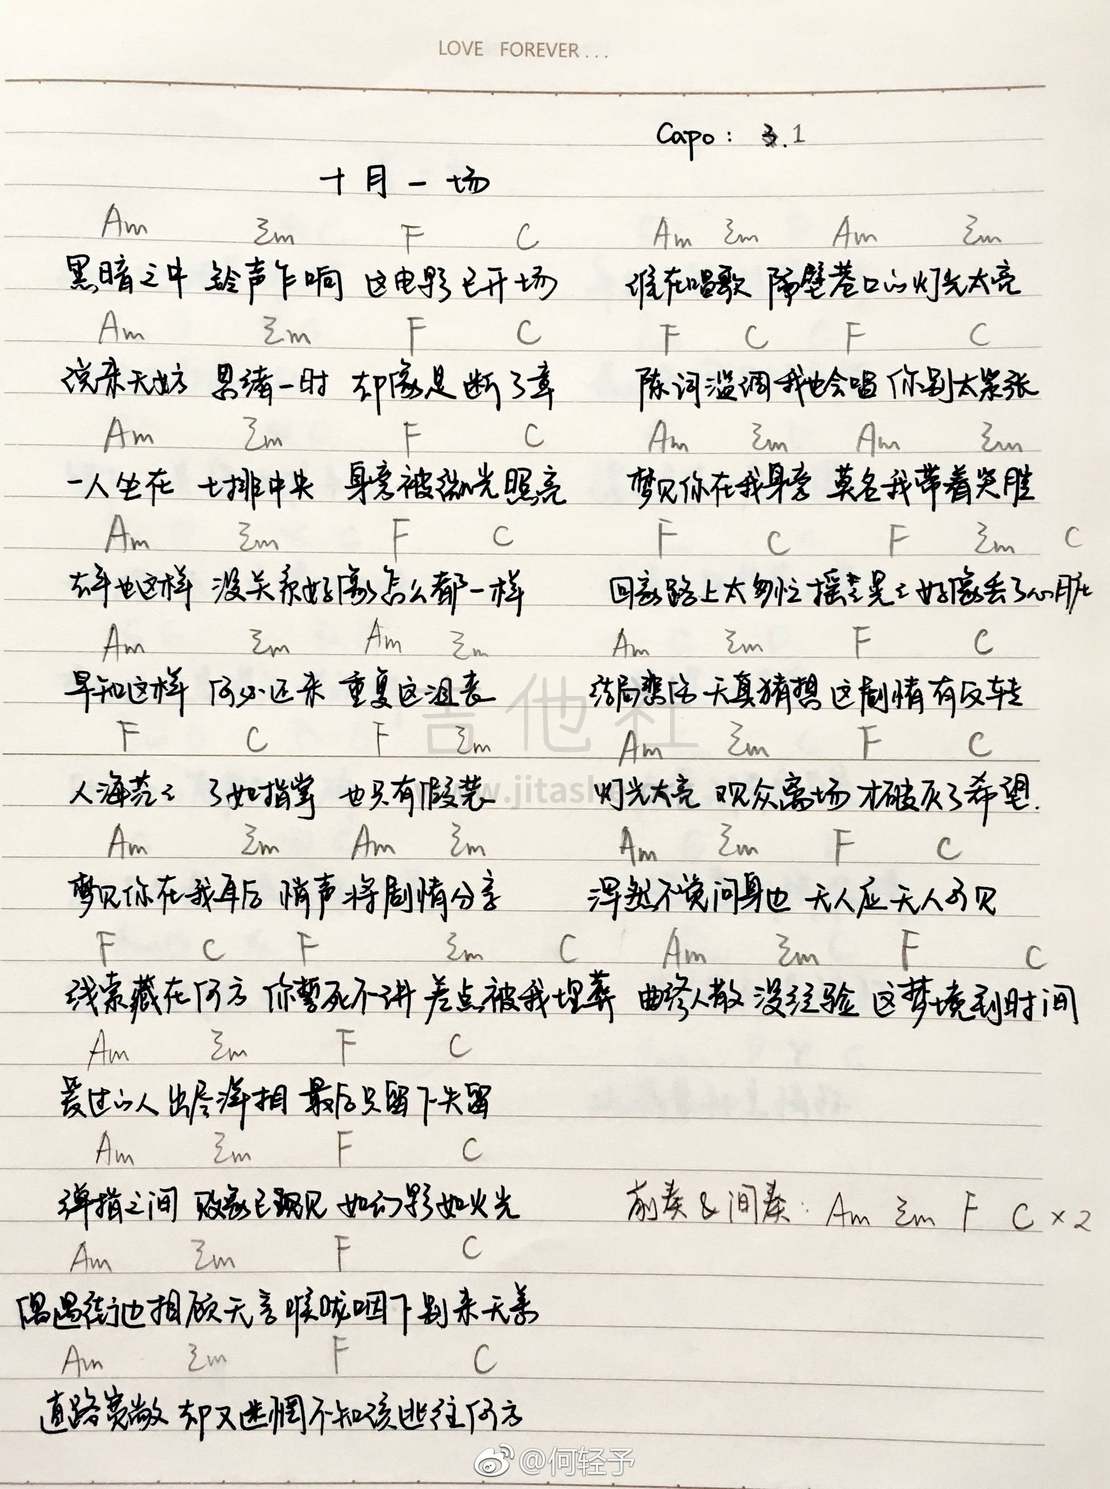 LOVE FOREVER...
Capo: 1
十月一场
Am Em F C
黑暗之中 铃声乍响 这电影已开场
Am Em F C
说来无妨 思绪一时 却像是断了章
Am Em F C
一人坐在 七排中央 身旁被微光照亮
Am Em F C
去年也这样 没关系好像怎么都一样
Am Em Am Em
早知这样 何必还来 重复这沮丧
F C F Em
人海茫々 了如指掌 也只有假装
Am Em Am Em
梦见你在我耳后 悄声将剧情分享
F C F Em C
线索藏在何方 你誓死不讲 差点被我埋葬
Am Em F C
爱过的人 出尽洋相 最后只留下失留
Am Em F C
弹指之间 败象已现 如幻影如火光
Am Em F C
偶遇街边相顾无言 喉咙咽下别来无恙
Am Em F C
道路宽敞 却又迷惘不知该逃往何方
Am Em Am Em
谁在唱歌 隔壁巷口的灯光太亮
F C F C
陈词滥调我也会唱 你别太紧张
Am Em Am Em
梦见你在我身旁 莫名我带着哭腔
F C F Em C
回家路上太匆忙 摇々晃々 好像丢了心脏
Am Em F C
结局悲伤 天真猜想 这剧情有反转
Am Em F C
灯光大亮 观众离场 才破灭了希望.
Am Em F C
浑然不觉问身边 无人应无人可见
Am Em F C
曲终人散 没经验 这梦境到时间
前奏&间奏: Am Em F C ×2
吉他社
www.jitashe
@何轻予